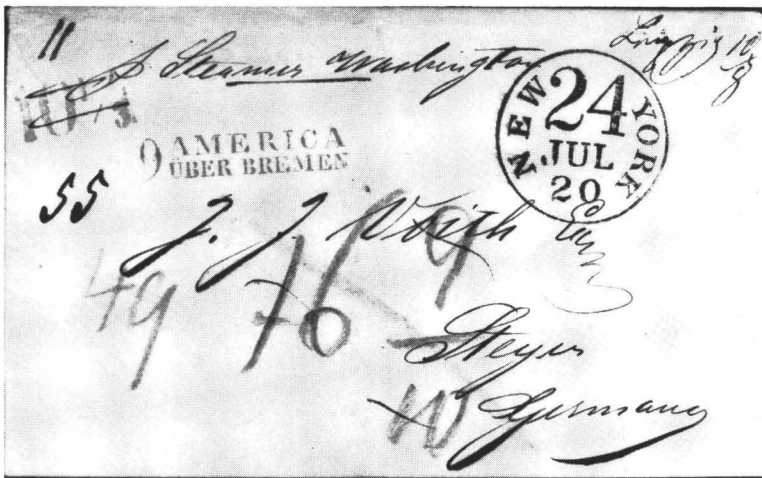 11
Steamer Washington
Leipzig 10/8
NEW YORK
24
JUL
20
AMERICA
ÜBER BREMEN
55
J. J. Voith
9
49
Steyer
10
Germany